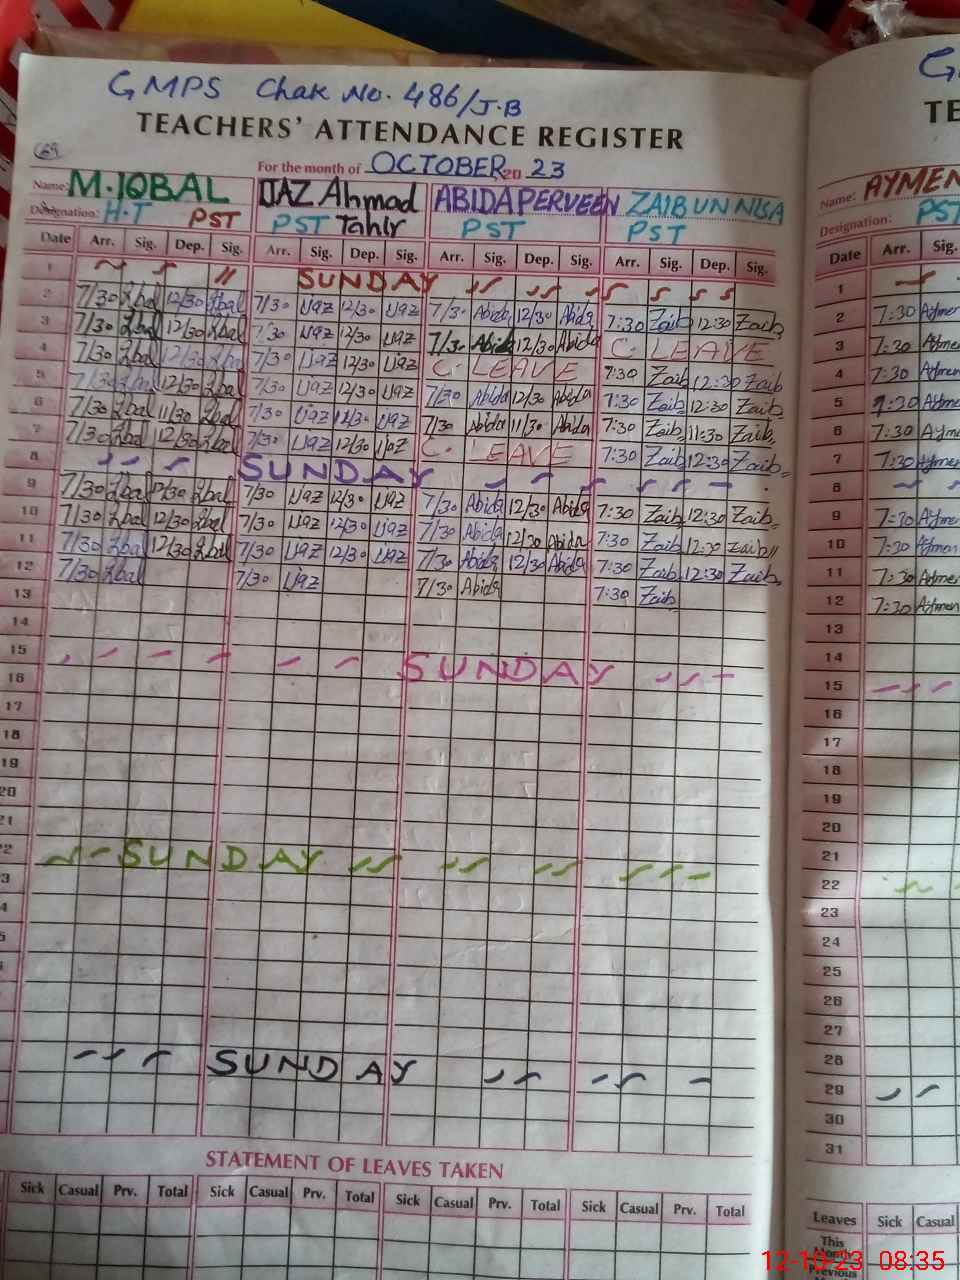 GMPS Chak No. 486/J.B
TEACHERS' ATTENDANCE REGISTER
For the month of OCTOBER 20 23
Name: M.IQBAL IJAZ Ahmad ABIDA PERVEEN ZAIB UN NISA Name: AYMEN
Designation: H.T PST PST Tahir PST PST Designation: PST
Date Arr. Sig. Dep. Sig. Arr. Sig. Dep. Sig. Arr. Sig. Dep. Sig. Arr. Sig. Dep. Sig. Date Arr. Sig.
1 SUNDAY 1
2 7/30 Iqbal 12/30 Iqbal 7/30 Ijaz 12/30 Ijaz 7/30 Abida 12/30 Abida 7:30 Zaib 12:30 Zaib 2 7:30 Aymen
3 7/30 Iqbal 12/30 Iqbal 7:30 Ijaz 12/30 Ijaz 7/30 Abida 12/30 Abida C. LEAVE 3 7:30 Aymen
4 7/30 Iqbal 12/30 Iqbal 7/30 Ijaz 12/30 Ijaz C. LEAVE 7:30 Zaib 12:30 Zaib 4 7:30 Aymen
5 7/30 Iqbal 12/30 Iqbal 7/30 Ijaz 12/30 Ijaz 7/30 Abida 12/30 Abida 7:30 Zaib 12:30 Zaib 5 7:30 Aymen
6 7/30 Iqbal 11/30 Iqbal 7/30 Ijaz 11/30 Ijaz 7/30 Abida 11/30 Abida 7:30 Zaib 11:30 Zaib 6 7:30 Aymen
7 7/30 Iqbal 12/30 Iqbal 7/30 Ijaz 12/30 Ijaz C. LEAVE 7:30 Zaib 12:30 Zaib 7 7:30 Aymen
8 SUNDAY 8
9 7/30 Iqbal 12/30 Iqbal 7/30 Ijaz 12/30 Ijaz 7/30 Abida 12/30 Abida 7:30 Zaib 12:30 Zaib 9 7:30 Aymen
10 7/30 Iqbal 12/30 Iqbal 7/30 Ijaz 12/30 Ijaz 7/30 Abida 12/30 Abida 7:30 Zaib 12:30 Zaib 10 7:30 Aymen
11 7/30 Iqbal 12/30 Iqbal 7/30 Ijaz 12/30 Ijaz 7/30 Abida 12/30 Abida 7:30 Zaib 12:30 Zaib 11 7:30 Aymen
12 7/30 Iqbal 7/30 Ijaz 7/30 Abida 7:30 Zaib 12 7:30 Aymen
13 13
14 14
15 SUNDAY 15
16 16
17 17
18 18
19 19
20 20
21 21
22 SUNDAY 22
3 23
4 24
5 25
26
27
28
SUNDAY 29
30
31
STATEMENT OF LEAVES TAKEN
Sick Casual Prv. Total Sick Casual Prv. Total Sick Casual Prv. Total Sick Casual Prv. Total Leaves Sick Casual
This Month
Previous
12-10-23 08:35